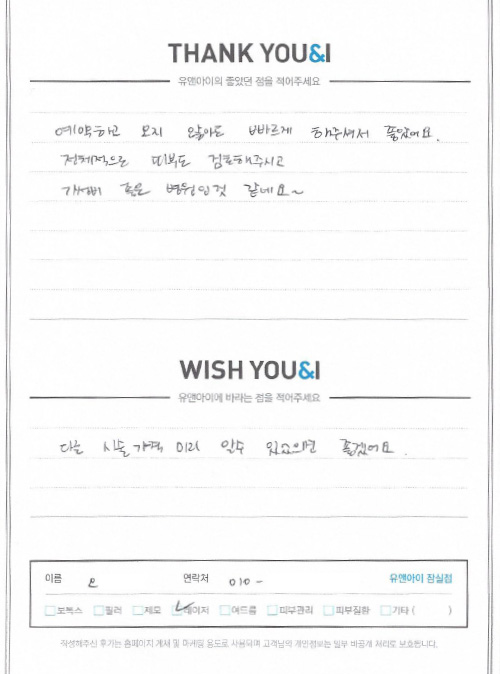 THANK YOU&I
유앤아이의 좋았던 점을 적어주세요
예약하고 오지 않아도 빠르게 해주셔서 좋았어요.
전체적으로 피부도 검토해주시고
가성비 좋은 병원인것 같네요~
WISH YOU&I
유앤아이에 바라는 점을 적어주세요
다른 시술 가격 미리 알수 있으면 좋겠어요.
이름 은 연락처 010- 유앤아이 잠실점
보톡스 필러 제모 레이저 여드름 피부관리 피부질환 기타 ( )
작성해주신 후기는 홈페이지 게재 및 마케팅 용도로 사용되며 고객님의 개인정보는 일부 비공개 처리로 보호됩니다.